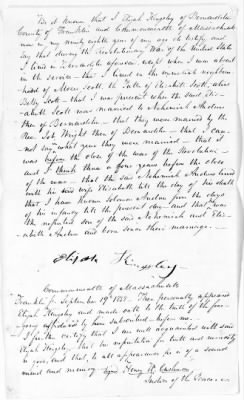 Be it known that I Elijah Kingsley of Bernardston
County of Franklin and Commonwealth of Massachusetts
in my ninety year of my age do testify and
say that during the Revolutionary War of the United States
I lived in Bernardston aforesaid except when I was absent
in the service - that I lived in the immediate neighbor-
hood of Moses Scott the Father of Elizabeth Scott, alias
Betsy Scott - that I was present when the said Eliz-
abeth Scott was married to Nehemiah Andrus
then of Bernardston - that they were married by the
Rev Job Wright then of Bernardston - that I can-
not say what year they were married, that it
was before the close of the war of the Revolution -
and I think than a few years before the close
of the war - that the said Nehemiah Andrus lived
with his said wife Elizabeth till the day of his death
that I have known Solomon Andrus from the days
of his infancy till the present day - and that was
the reputed son of the said Nehemiah and Eliz-
abeth Andrus and born since their marriage -
Elijah Kingsley
Commonwealth of Massachusetts
Franklin ss September 19th 1838 - Then personally appeared
Elijah Kingsley and made oath to the truth of the fore-
going affidavit by him subscribed before me -
I further certify that I am well acquainted with said
Elijah Kingsley, that his reputation for truth and veracity
is good, and that, to all appearances he is of a sound
mind and memory Henry W. Cushman
Justice of the Peace